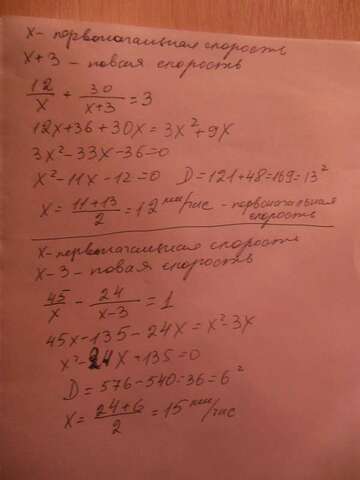 x - первоначальная скорость
x+3 - новая скорость
12/x + 30/(x+3) = 3
12x+36+30x=3x²+9x
3x²-33x-36=0
x²-11x-12=0 D=121+48=169=13²
x = (11+13)/2 = 12 км/час - первоначальная скорость
x - первоначальная скорость
x-3 - новая скорость
45/x - 24/(x-3) = 1
45x-135-24x=x²-3x
x²-24x+135=0
D=576-540=36=6²
x = (24+6)/2 = 15 км/час